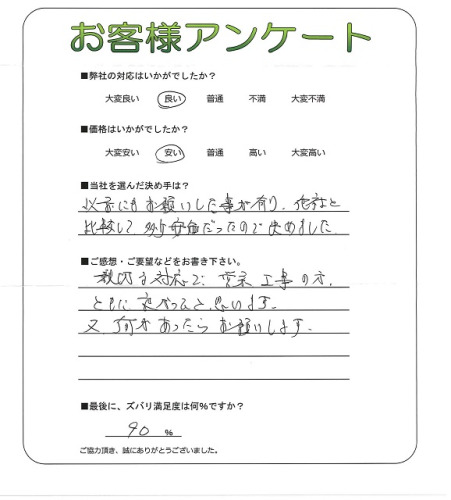 お客様アンケート
■弊社の対応はいかがでしたか?
大変良い 良い 普通 不満 大変不満
■価格はいかがでしたか?
大変安い 安い 普通 高い 大変高い
■当社を選んだ決め手は?
以前にもお願いした事が有り、他社と
比較して 多少安価だったので決めました
■ご感想・ご要望などをお書き下さい。
親切な対応で、営業 工事の方、
ともに 良かったと思います。
又 何かあったらお願いします。
■最後に、ズバリ満足度は何%ですか?
90 %
ご協力頂き、誠にありがとうございました。